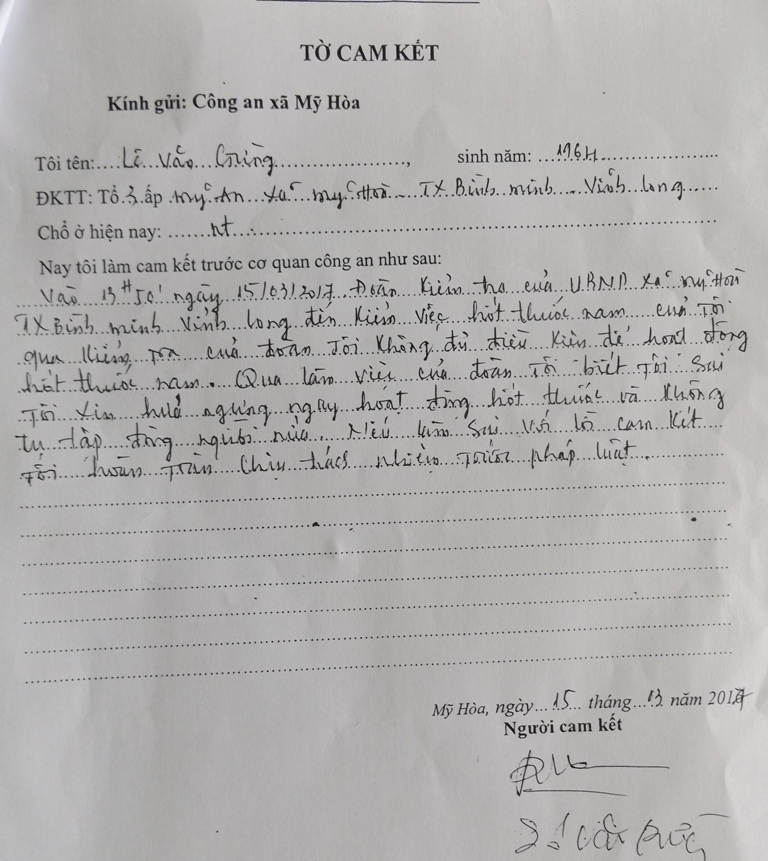 TỜ CAM KẾT
Kính gửi: Công an xã Mỹ Hòa
Tôi tên:.... Lê Văn ................., sinh năm: ...1964.....................
ĐKTT: Tổ.3.ấp .Mỹ An xã Mỹ Hoà TX Bình minh Vĩnh long......
Chổ ở hiện nay: .......nt........
Nay tôi làm cam kết trước cơ quan công an như sau:
Vào 13H50' ngày 15/03/2017. Đoàn Kiểm tra của UBND xã mỹ Hoà
TX Bình minh Vĩnh long đến Kiểm việc hốt thuốc nam của Tôi
qua Kiểm tra của đoàn Tôi Không đủ điều Kiện để hoạt động
hốt thuốc nam. Qua làm việc của đoàn Tôi biết Tôi Sai
Tôi xin hứa ngưng ngay hoạt động hốt thuốc và Không
tụ tập đông người nữa Nếu làm Sai với tờ cam Kết
Tôi hoàn Toàn Chịu trách nhiệm trước pháp luật.
Mỹ Hòa, ngày...15... tháng...03. năm 2017
Người cam kết